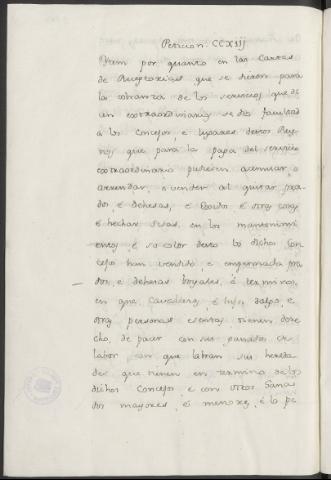 Peticion. CCXIIJ
Item por quanto en las Cartas
de Receptorias que se dieron para
la cobranza de los servicios, que di
un extraordinario se dio facultad
a los Concejos, e lugares destos Rey-
nos, que para la paga del servicio
extraordinario pudiesen arrendar, o
e vender al quitar pra-
dos, é dehesas, é Exidos é otras cosas
é hechar sisas, en los mantenimi
entos, é so color desto los dichos Con
cejos han vendido, e empeñado pra
dos, e dehesas boyales, é terminos,
en que Cavalleros, é hijos dalgo, e
otras personas esentas tienen dere
cho, de pacer con sus ganados de
labor con que labran sus hereda
des que tienen en termino de los
dichos Concejos, e con otros Gana
dos mayores, é menores, é lo pe